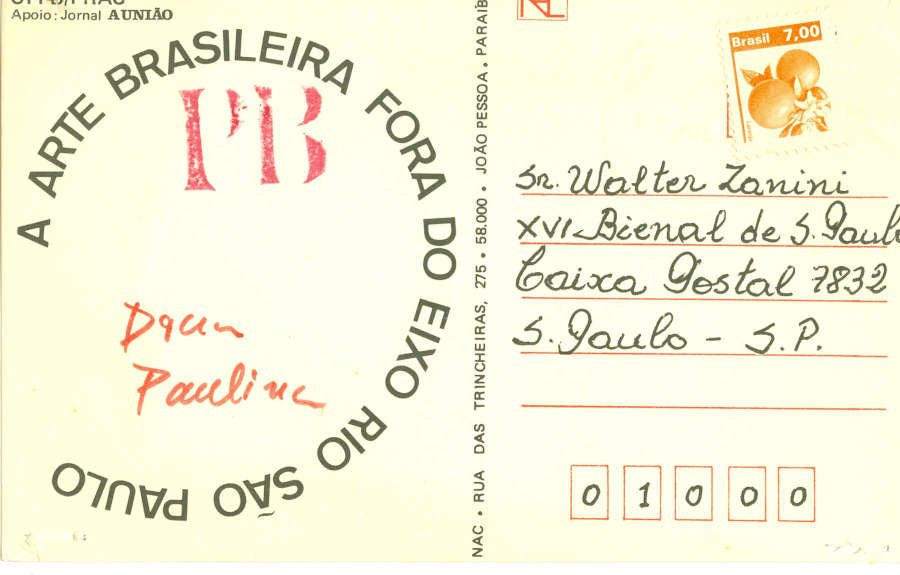 Apoio: Jornal A UNIÃO
A ARTE BRASILEIRA FORA DO EIXO RIO SÃO PAULO
PB
Paulina
NAC • RUA DAS TRINCHEIRAS, 275 • 58.000 • JOÃO PESSOA, PARAIB
Brasil 7,00
Sr. Walter Zanini
XVI Bienal de S. Paulo
Caixa Postal 7832
S. Paulo - S.P.
0 1 0 0 0